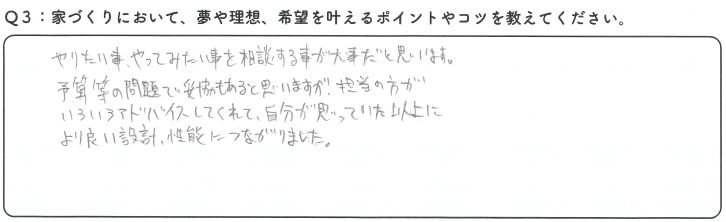 Q3：家づくりにおいて、夢や理想、希望を叶えるポイントやコツを教えてください。
やりたい事、やってみたい事を相談する事が大事だと思います。
予算等の問題で妥協もあると思いますが、担当の方が
いろいろアドバイスしてくれて、自分が思っていた以上に
より良い設計、性能につながりました。